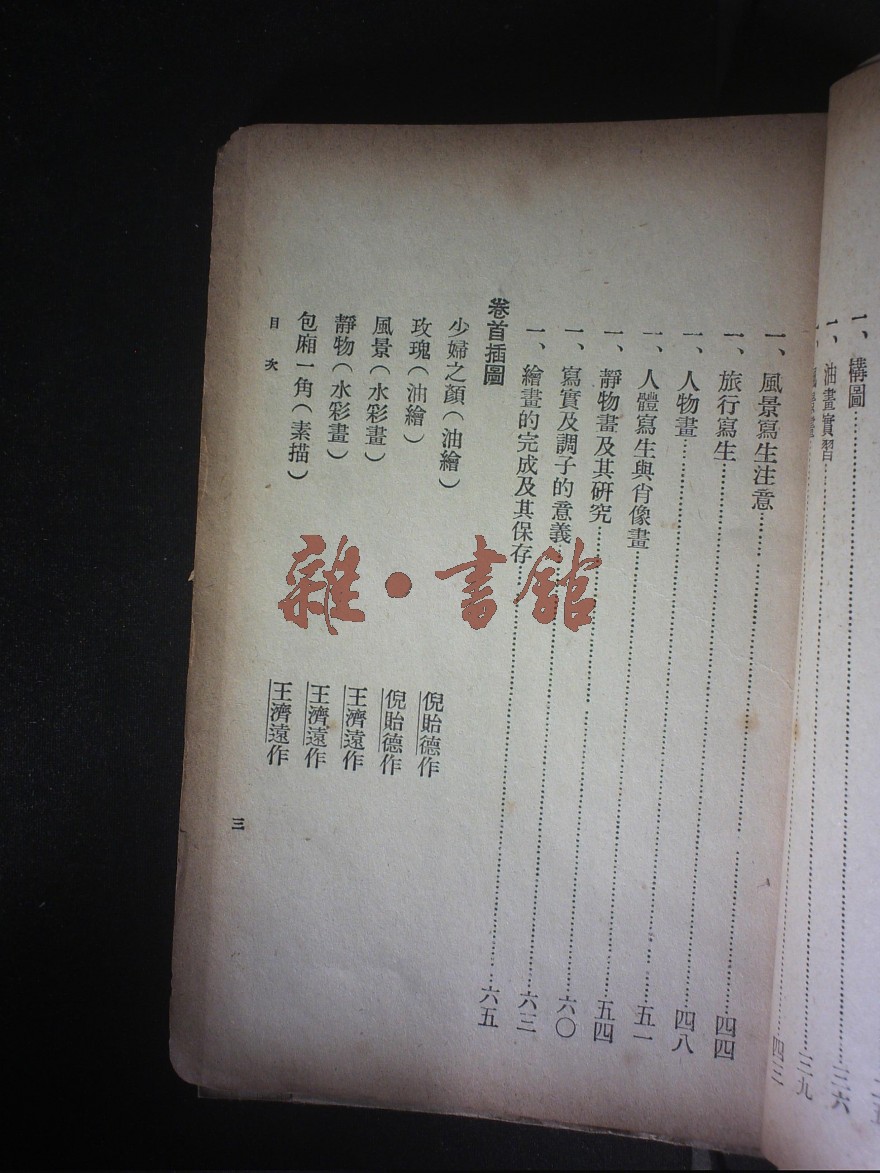 一、構圖……三六
一、油畫實習……三九
四三
一、風景寫生注意……四四
一、旅行寫生……四八
一、人物畫……五一
一、人體寫生與肖像畫……五四
一、靜物畫及其研究……六〇
一、寫實及調子的意義……六三
一、繪畫的完成及其保存……六五
卷首插圖
少婦之顏(油繪) 倪貽德作
玫瑰(油繪) 倪貽德作
風景(水彩畫) 王濟遠作
靜物(水彩畫) 王濟遠作
包廂一角(素描) 王濟遠作
目次
三
雜·書館